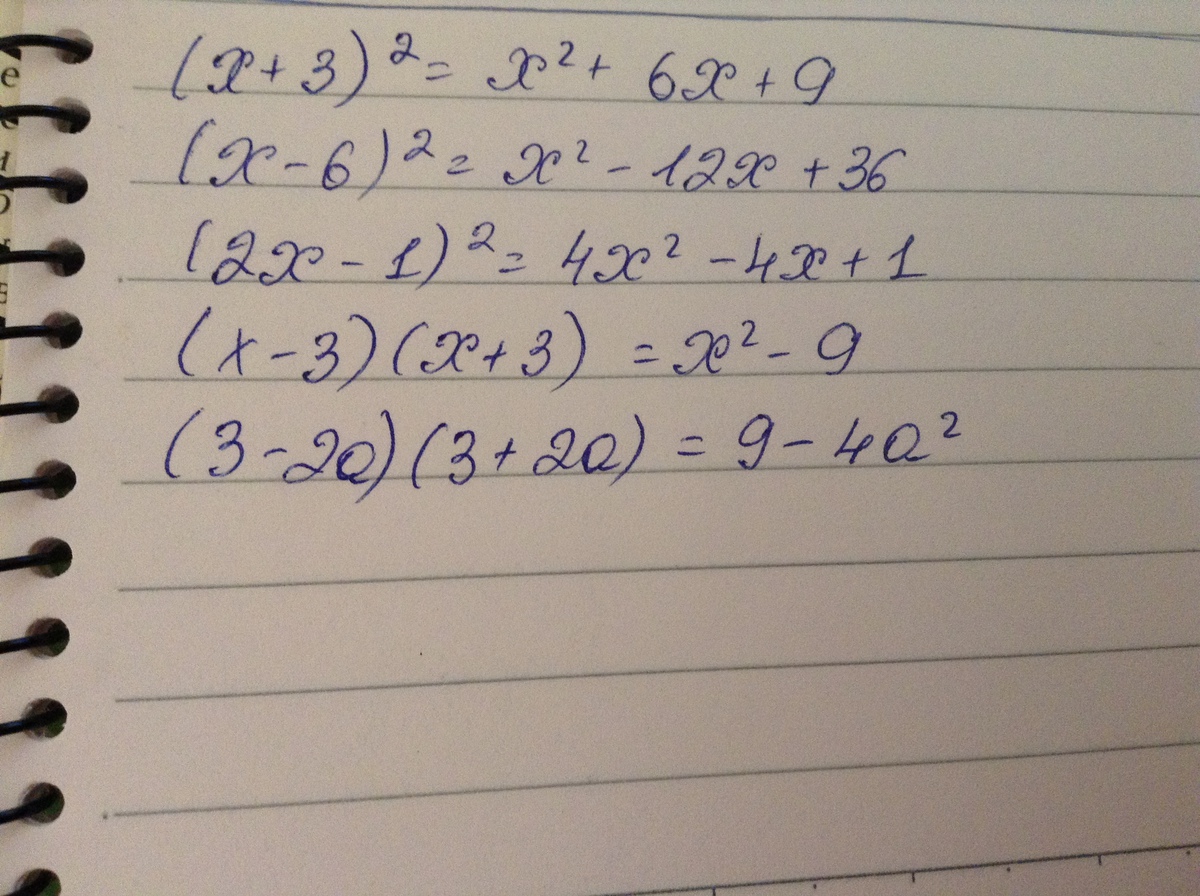 (x+3)²= x²+ 6x+9
(x-6)²= x²-12x+36
(2x-1)²= 4x²-4x+1
(x-3)(x+3) =x²-9
(3-2a)(3+2a) = 9-4a²